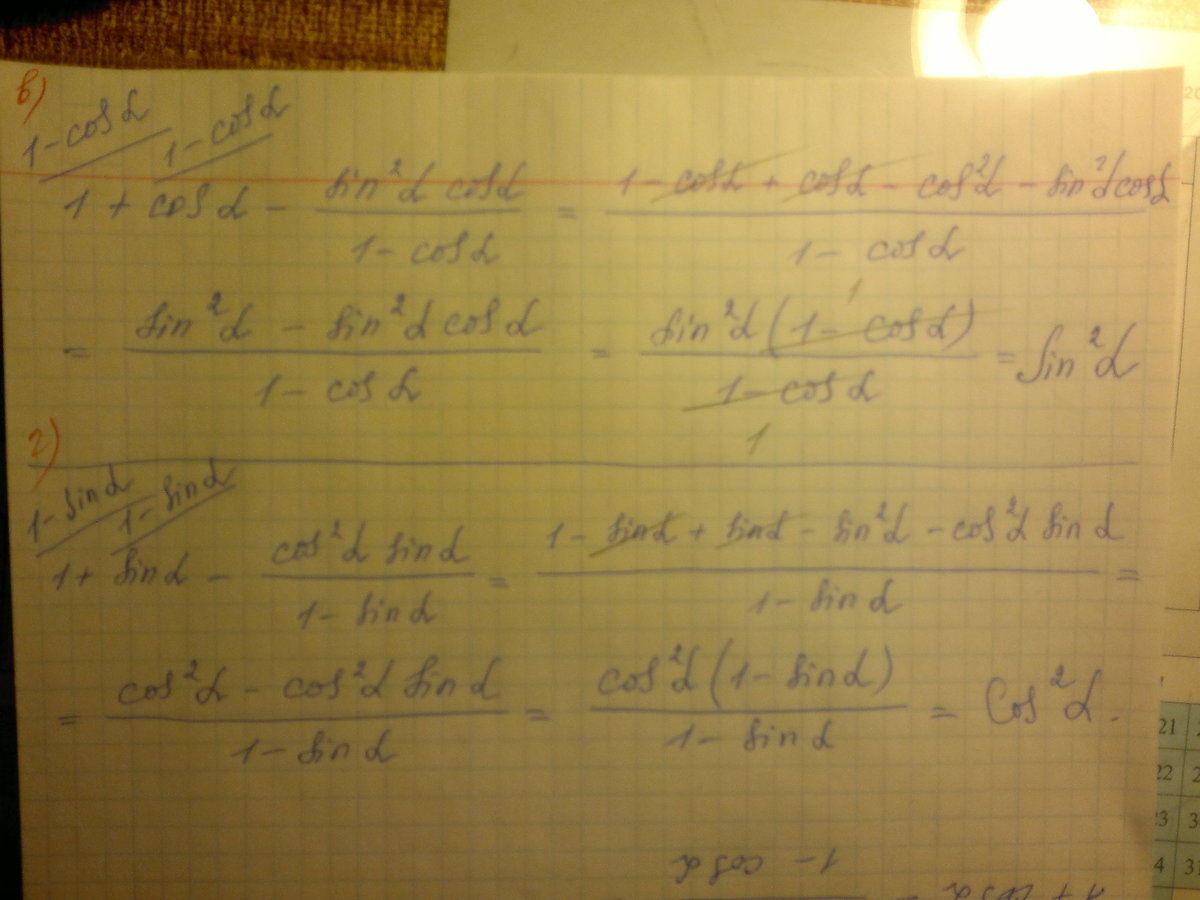 в)
1-cosα 1-cosα
1 + cosα - sin²α cosα / 1-cosα = 1-cosα + cosα - cos²α - sin²α cosα / 1-cosα
= sin²α - sin²α cosα / 1-cosα = sin²α (1-cosα) 1 / 1-cosα 1 = sin²α
г)
1-sinα 1-sinα
1 + sinα - cos²α sinα / 1-sinα = 1-sinα + sinα - sin²α - cos²α sinα / 1-sinα =
= cos²α - cos²α sinα / 1-sinα = cos²α (1-sinα) / 1-sinα = Cos²α.
1 - cosα
21
22
23